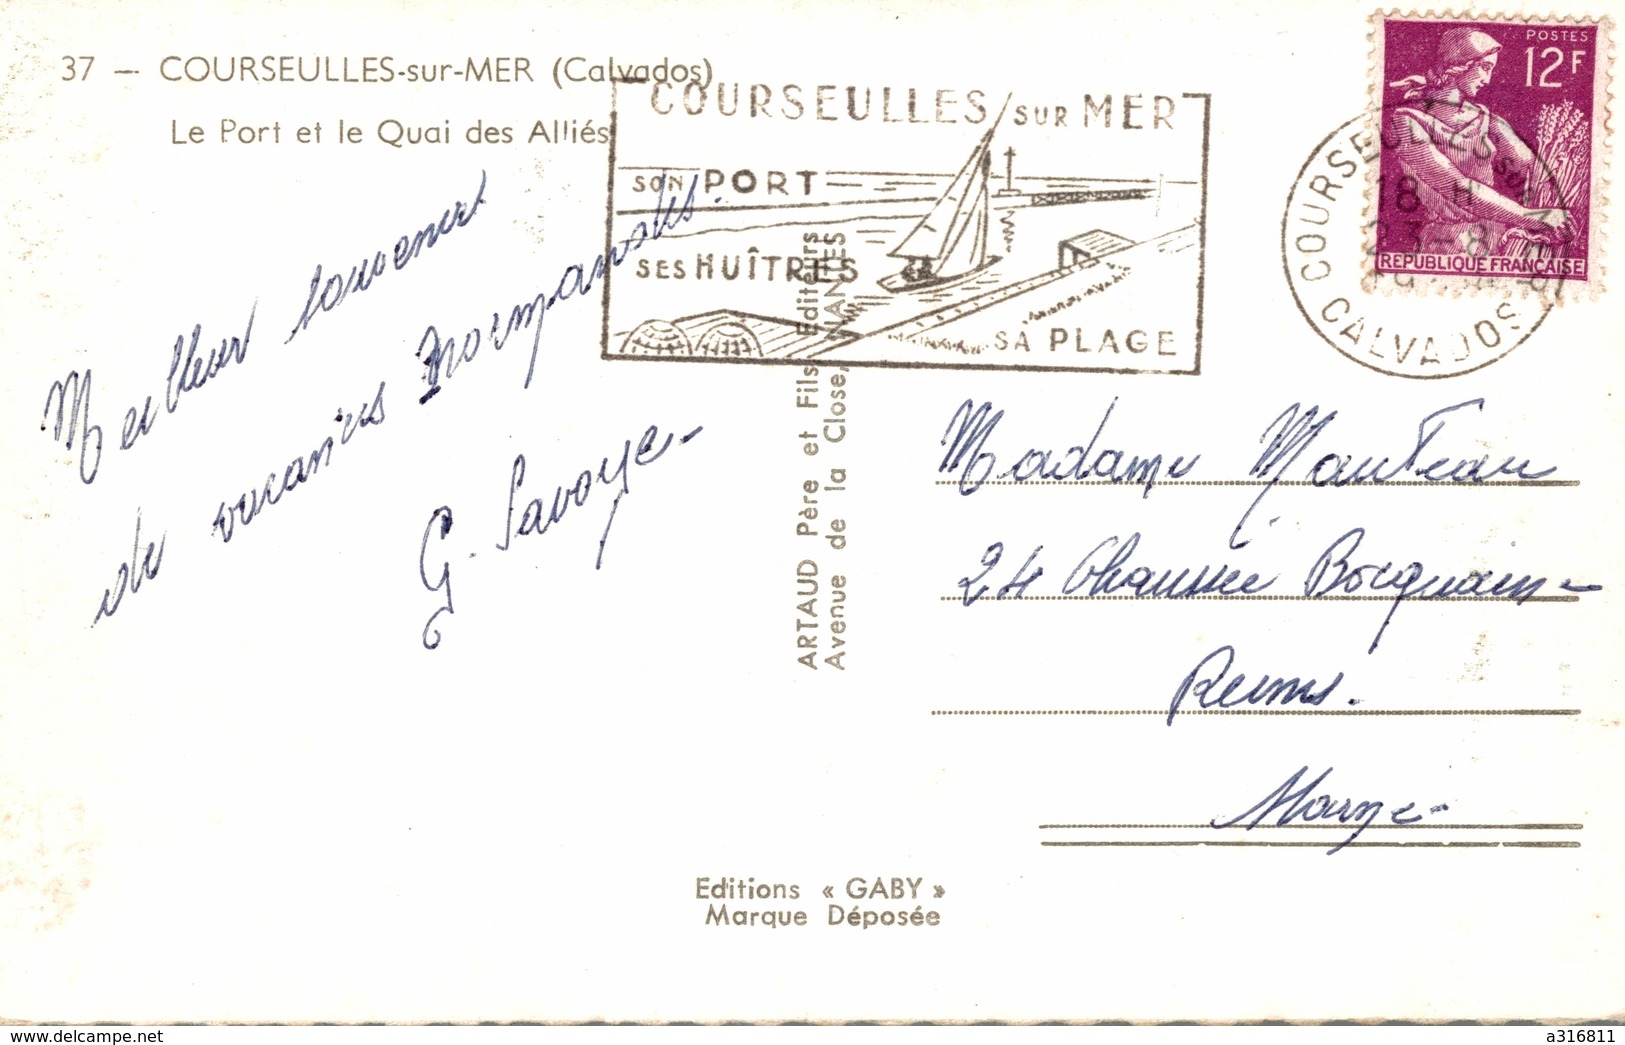 37 — COURSEULLES-sur-MER (Calvados)
Le Port et le Quai des Alliés
COURSEULLES SUR MER
SON PORT
SES HUÎTRES
SA PLAGE
POSTES
12F
REPUBLIQUE FRANÇAISE
COURSEULLES SUR MER
18 H
23-8
CALVADOS
Meilleur souvenir
de vacances Normandes.
G. Savoye
ARTAUD Père et Fils, Editeurs
Avenue de la Close, NANTES
Madame Manteau
24 Chaussée Bocquaine
Reims.
Marne
Editions « GABY »
Marque Déposée
delcampe.net
a316811